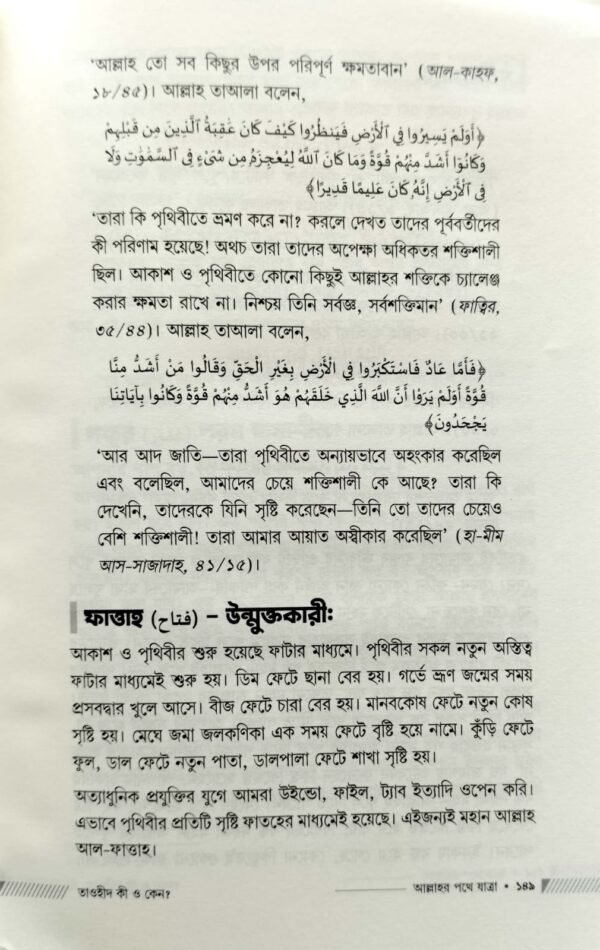 ‘আল্লাহ তো সব কিছুর উপর পরিপূর্ণ ক্ষমতাবান’ (আল-কাহফ,
১৮/৪৫)। আল্লাহ তাআলা বলেন,
﴿أَوَلَمْ يَسِيرُوا فِي الْأَرْضِ فَيَنظُرُوا كَيْفَ كَانَ عَٰقِبَةُ الَّذِينَ مِن قَبْلِهِمْ
وَكَانُوٓا أَشَدَّ مِنْهُمْ قُوَّةً وَمَا كَانَ اللَّهُ لِيُعْجِزَهُۥ مِن شَيْءٍ فِي السَّمَٰوَٰتِ وَلَا
فِي الْأَرْضِ إِنَّهُۥ كَانَ عَلِيمًا قَدِيرًا﴾
‘তারা কি পৃথিবীতে ভ্রমণ করে না? করলে দেখত তাদের পূর্ববর্তীদের
কী পরিণাম হয়েছে! অথচ তারা তাদের অপেক্ষা অধিকতর শক্তিশালী
ছিল। আকাশ ও পৃথিবীতে কোনো কিছুই আল্লাহর শক্তিকে চ্যালেঞ্জ
করার ক্ষমতা রাখে না। নিশ্চয় তিনি সর্বজ্ঞ, সর্বশক্তিমান’ (ফাত্বির,
৩৫/৪৪)। আল্লাহ তাআলা বলেন,
﴿فَأَمَّا عَادٌ فَاسْتَكْبَرُوا فِي الْأَرْضِ بِغَيْرِ الْحَقِّ وَقَالُوا مَنْ أَشَدُّ مِنَّا
قُوَّةً أَوَلَمْ يَرَوْا أَنَّ اللَّهَ الَّذِي خَلَقَهُمْ هُوَ أَشَدُّ مِنْهُمْ قُوَّةً وَكَانُوا بِآيَاتِنَا
يَجْحَدُونَ﴾
‘আর আদ জাতি—তারা পৃথিবীতে অন্যায়ভাবে অহংকার করেছিল
এবং বলেছিল, আমাদের চেয়ে শক্তিশালী কে আছে? তারা কি
দেখেনি, তাদেরকে যিনি সৃষ্টি করেছেন—তিনি তো তাদের চেয়েও
বেশি শক্তিশালী! তারা আমার আয়াত অস্বীকার করেছিল’ (হা-মীম
আস-সাজাদাহ, ৪১/১৫)।
ফাত্তাহ (فتاح) – উন্মুক্তকারী:
আকাশ ও পৃথিবীর শুরু হয়েছে ফাটার মাধ্যমে। পৃথিবীর সকল নতুন অস্তিত্ব
ফাটার মাধ্যমেই শুরু হয়। ডিম ফেটে ছানা বের হয়। গর্ভে ভ্রূণ জন্মের সময়
প্রসবদ্বার খুলে আসে। বীজ ফেটে চারা বের হয়। মানবকোষ ফেটে নতুন কোষ
সৃষ্টি হয়। মেঘে জমা জলকণিকা এক সময় ফেটে বৃষ্টি হয়ে নামে। কুঁড়ি ফেটে
ফুল, ডাল ফেটে নতুন পাতা, ডালপালা ফেটে শাখা সৃষ্টি হয়।
অত্যাধুনিক প্রযুক্তির যুগে আমরা উইন্ডো, ফাইল, ট্যাব ইত্যাদি ওপেন করি।
এভাবে পৃথিবীর প্রতিটি সৃষ্টি ফাতহের মাধ্যমেই হয়েছে। এইজন্যই মহান আল্লাহ
আল-ফাত্তাহ।
তাওহীদ কী ও কেন?
আল্লাহর পথে যাত্রা • ১৪৯